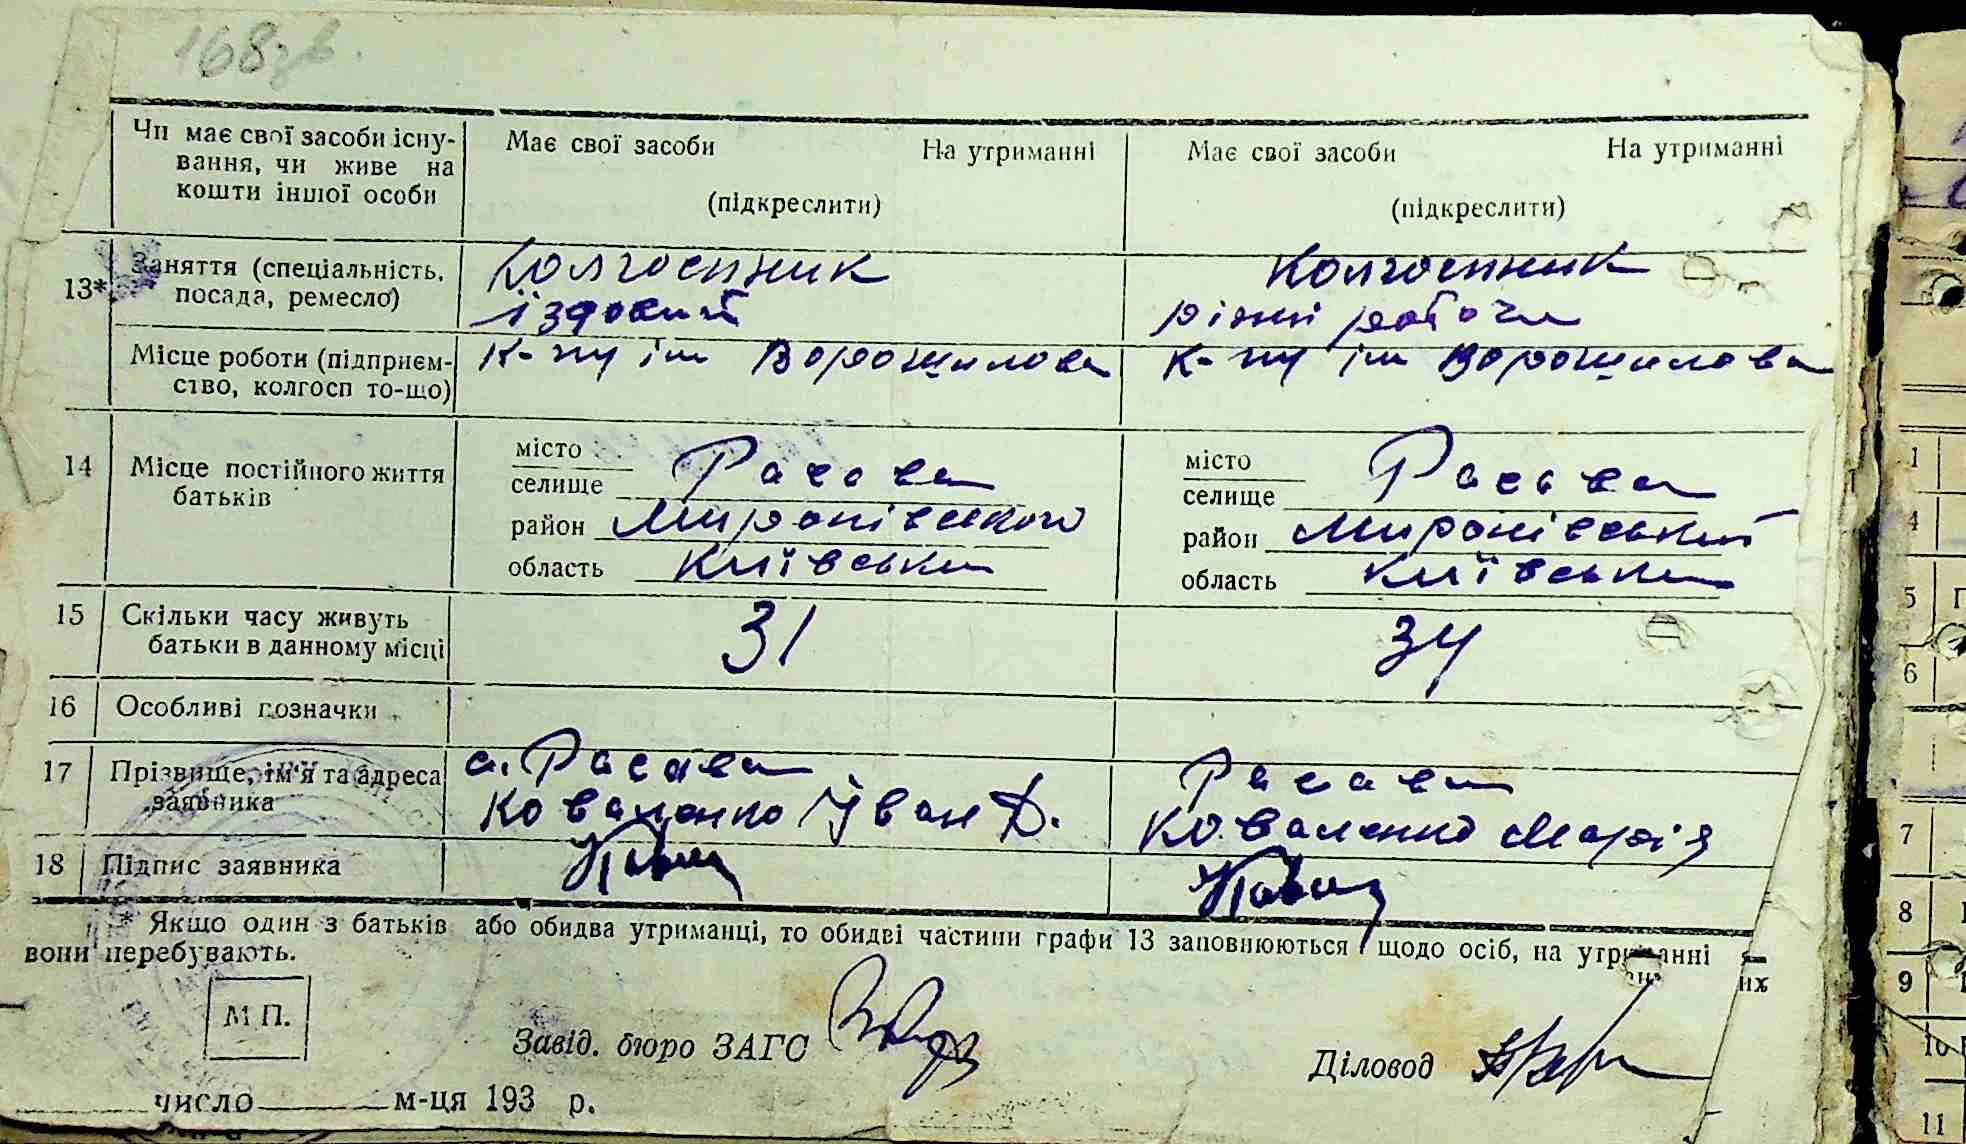 168зв.
Чи має свої засоби існу-
вання, чи живе на
кошти іншої особи
Має свої засоби На утриманні
(підкреслити)
Має свої засоби На утриманні
(підкреслити)
13*
Заняття (спеціальність,
посада, ремесло)
Колгоспник
їздовий
Колгоспник
різні роботи
Місце роботи (підприєм-
ство, колгосп то-що)
К-пу ім Ворошилова
К-пу ім Ворошилова
14
Місце постійного життя
батьків
місто
селище Расава
район Миронівського
область Київська
місто
селище Расава
район Миронівський
область Київська
15
Скільки часу живуть
батьки в данному місці
31
34
16
Особливі позначки
17
Прізвище, ім'я та адреса
заявника
с. Расава
Коваленко Іван Д.
Расава
Коваленко Марія
18
Підпис заявника
* Якщо один з батьків або обидва утриманці, то обидві частини графи 13 заповнюються щодо осіб, на утриманні яких
вони перебувають.
М П.
Завід. бюро ЗАГС
Діловод
число м-ця 193 р.
1
4
5
6
7
8
9
10
11